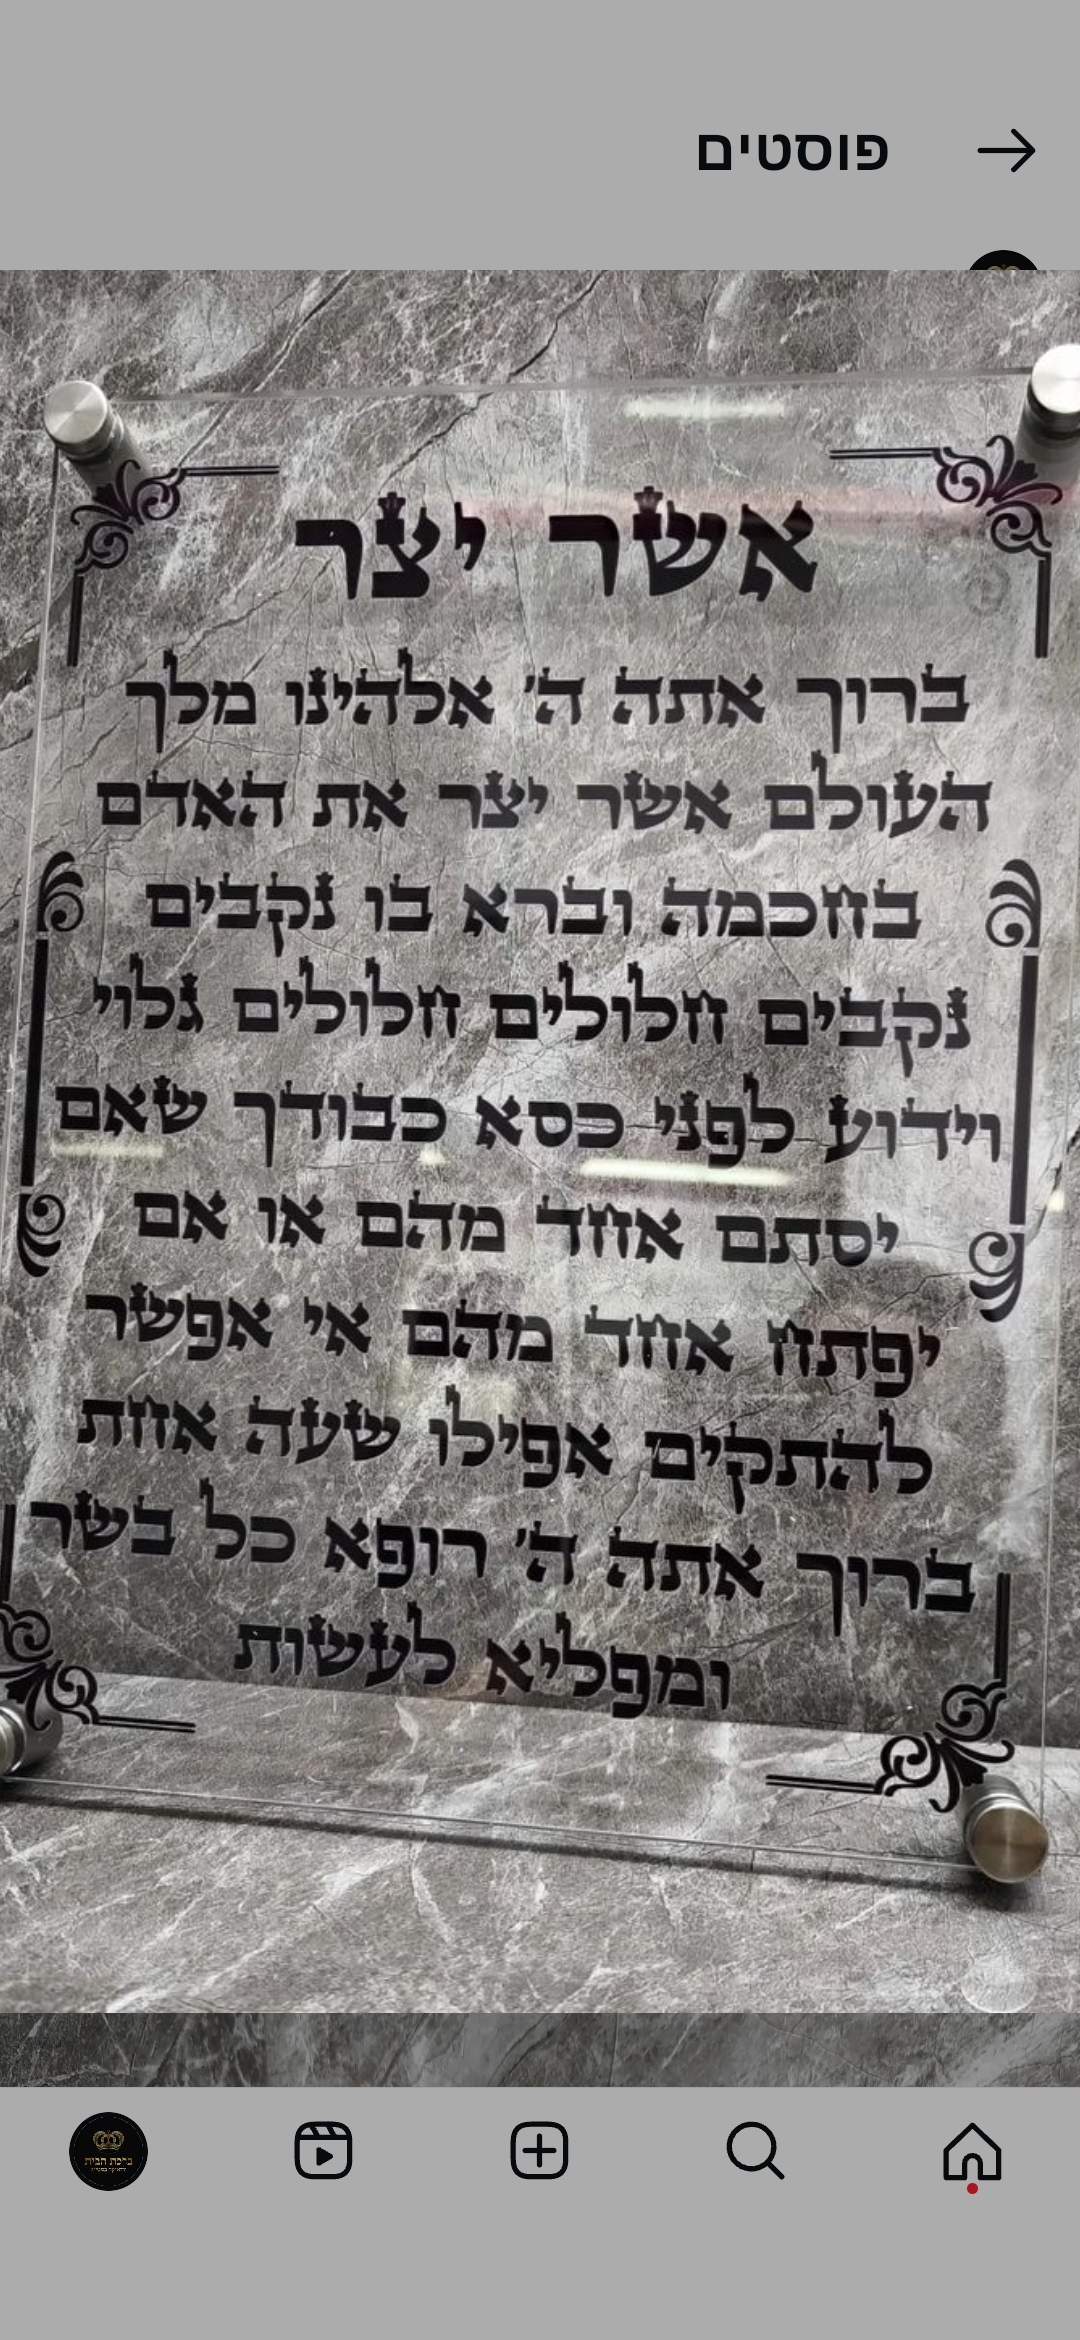 פוסטים
אשר יצר
ברוך אתה ה' אלהינו מלך
העולם אשר יצר את האדם
בחכמה וברא בו נקבים
נקבים חלולים חלולים גלוי
וידוע לפני כסא כבודך שאם
יסתם אחד מהם או אם
יפתח אחד מהם אי אפשר
להתקים אפילו שעה אחת
ברוך אתה ה' רופא כל בשר
ומפליא לעשות
ברכת הבית